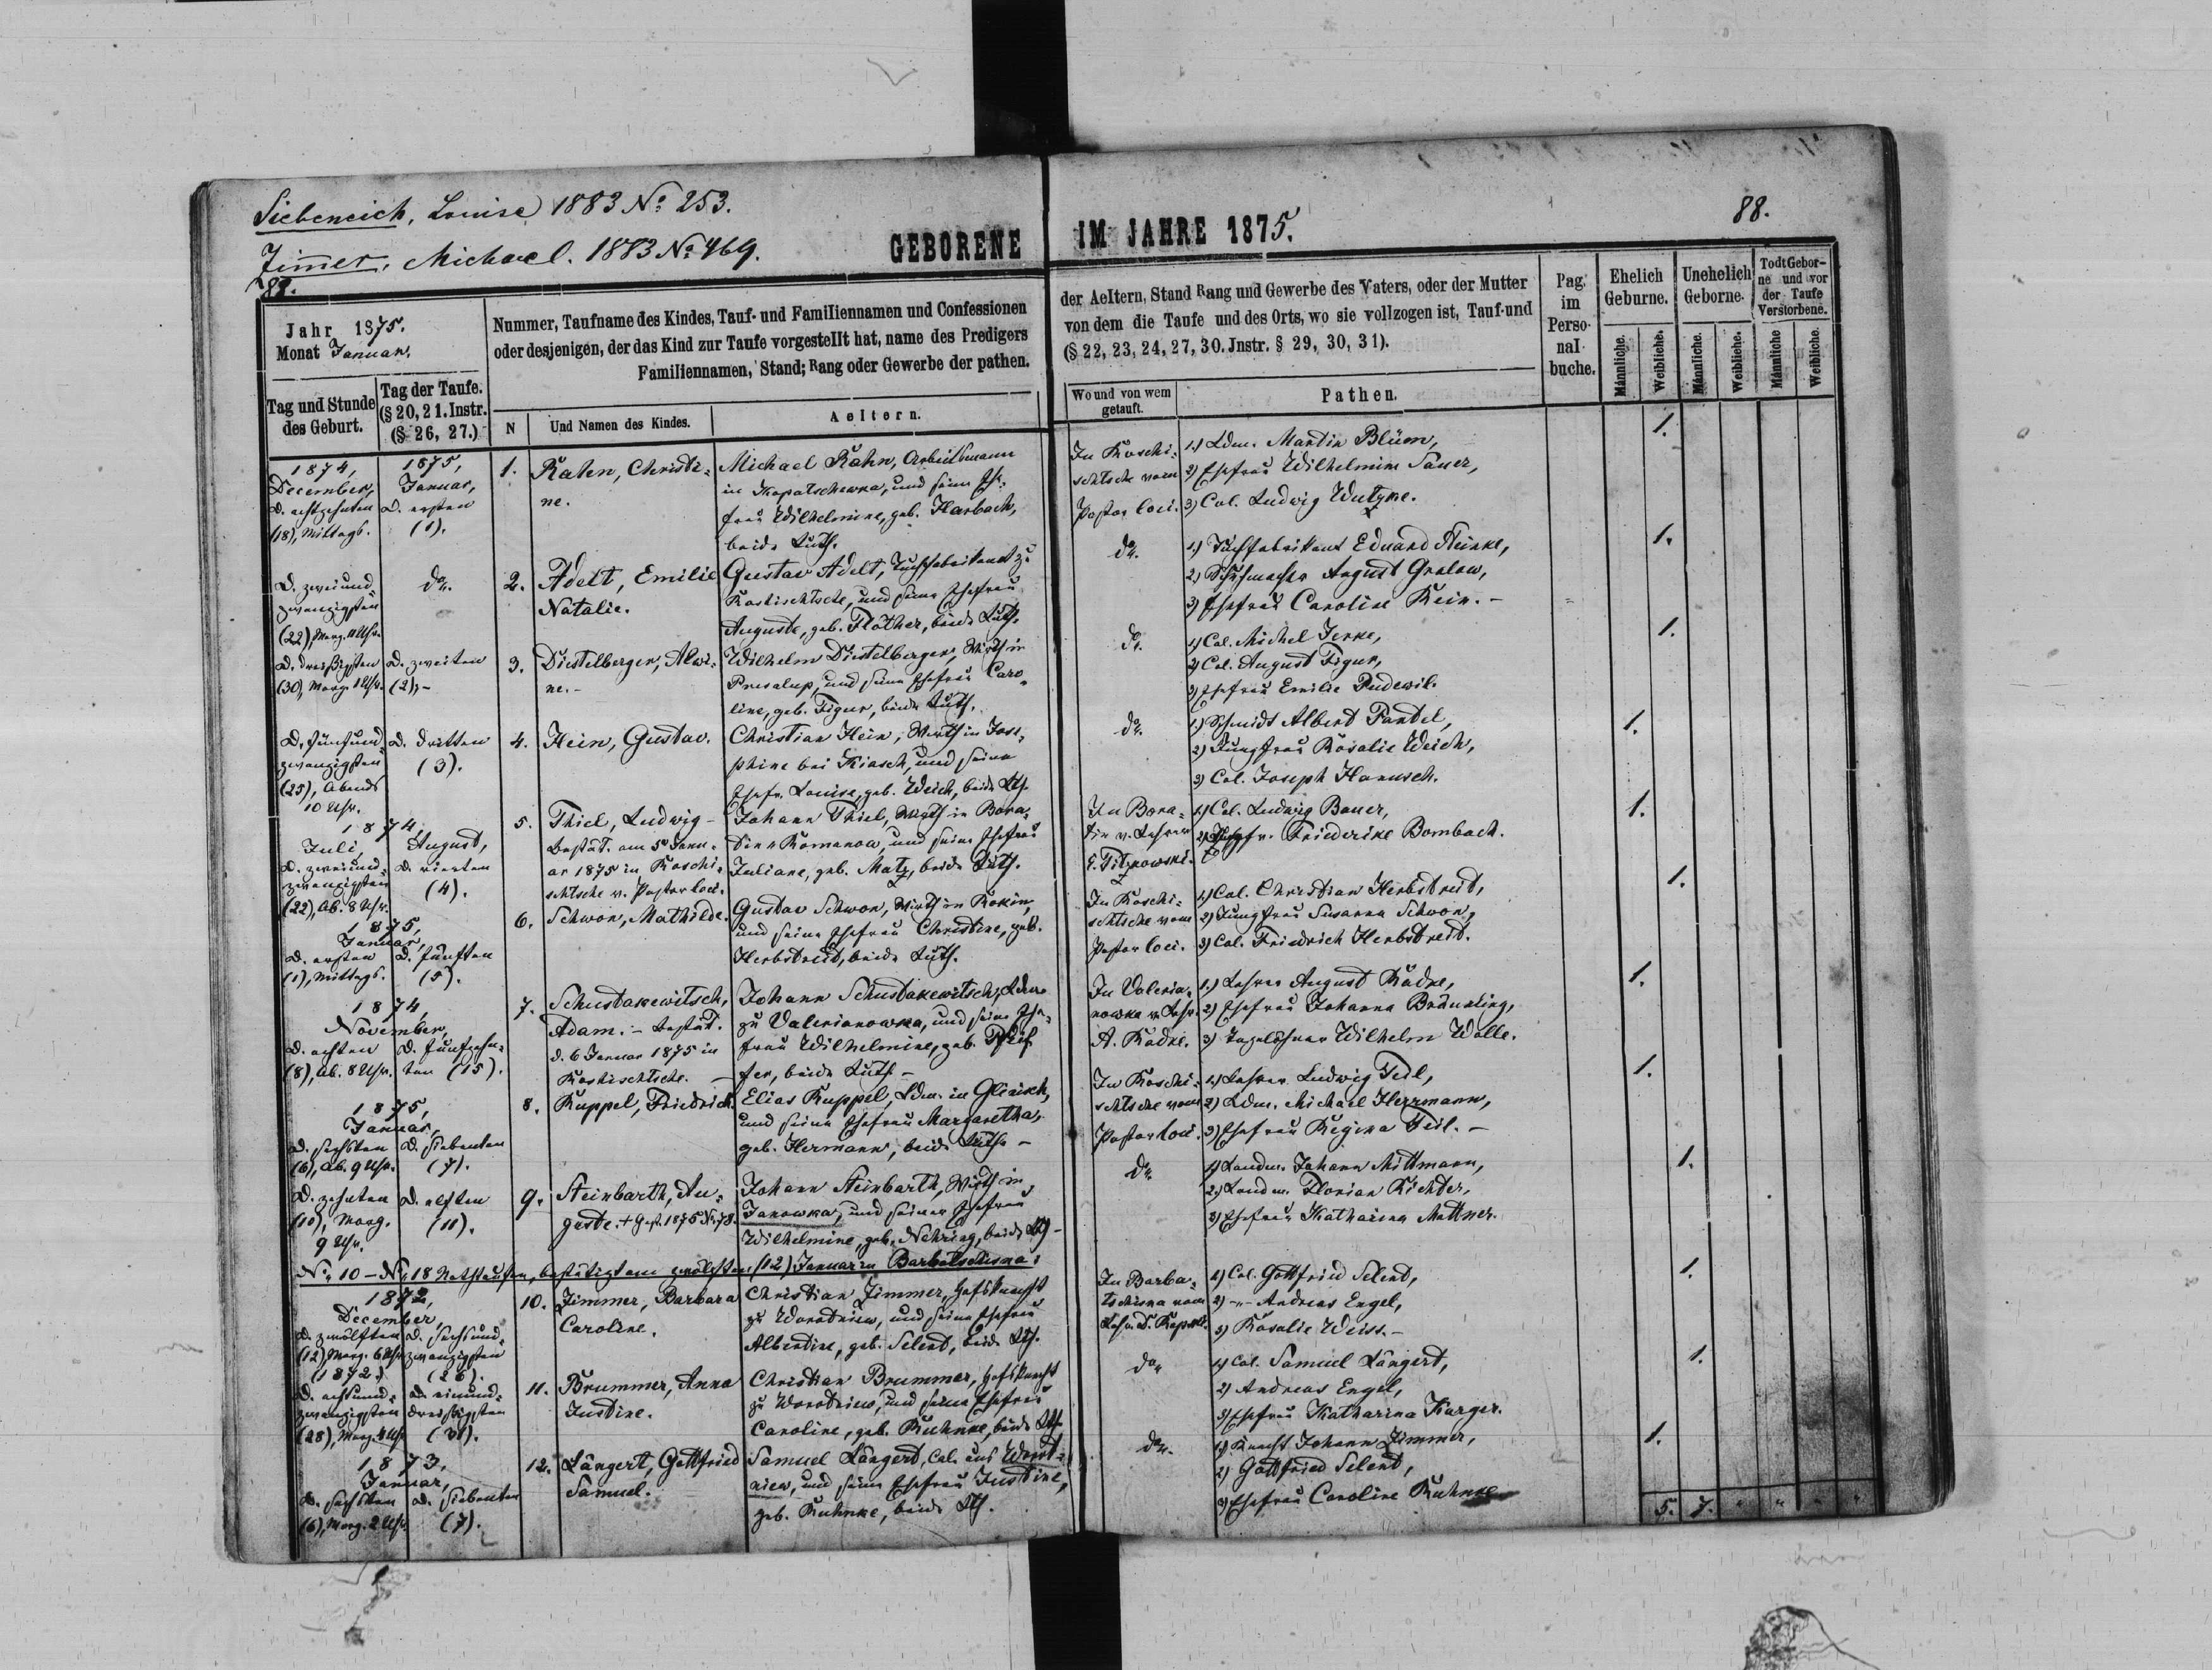 Siebeneich, Louise 1883 № 253.
Zimmer, Michael. 1883 № 469.
88.
GEBORENE
IM JAHRE 1875.
88.
Jahr 1875.
Monat Januar.
Tag und Stunde
des Geburt.
Tag der Taufe.
(§ 20, 21. Instr.
(§ 26, 27.)
Nummer, Taufname des Kindes, Tauf- und Familiennamen und Confessionen
oder desjenigen, der das Kind zur Taufe vorgestellt hat, name des Predigers
Familiennamen, Stand; Rang oder Gewerbe der pathen.
N
Und Namen des Kindes.
Aeltern.
der Aeltern, Stand Rang und Gewerbe des Vaters, oder der Mutter
von dem die Taufe und des Orts, wo sie vollzogen ist, Tauf-und
(§ 22, 23, 24, 27, 30. Jnstr. § 29, 30, 31).
Wo und von wem
getauft.
Pathen.
Pag.
im
Perso-
nal-
buche.
Ehelich
Geburne.
Unehelich
Geborne.
Todt Gebor-
ne und vor
der Taufe
Verstorbene.
Männliche.
Weibliche.
Männliche.
Weibliche.
Männliche
Weibliche.
1874,
December,
D. achtzehnten
(18), Mittags.
1875,
Januar,
D. ersten
(1).
1.
Rahn, Christi-
ne.
Michael Rahn, Arbeitsmann
in Kopatschewka, und seine Ehe-
frau Wilhelmine, geb. Harbach,
beide Luth.
In Roschi-
schtsche vom
Pastor loci.
1.) Ldm. Martin Blüm,
2) Ehefrau Wilhelmine Sauer,
3) Col. Ludwig Wutzke.
1.
D. zweiund
zwanzigsten
(22), Morg. 11 Uhr.
do.
2.
Adelt, Emilie
Natalie.
Gustav Adelt, Tuchfabrikant zu
Roschischtsche, und seine Ehefrau
Auguste, geb. Flöther, beide Luth.
do.
1.) Tuchfabrikant Eduard Steinke,
2) Schuhmacher August Gralow,
3) Ehefrau Caroline Kein. -
1.
D. dreißigsten
(30), Morg. 1 Uhr.
D. zweiten
(2). -
3.
Distelberger, Alwi-
ne. -
Wilhelm Distelberger, Wirth in
Presalup, und seine Ehefrau Caro-
line, geb. Figur, beide Luth.
do.
1) Col. Michel Jerke,
2) Col. August Figur,
3) Ehefrau Emilie Pudewil.
1.
D. fünfund-
zwanzigsten
(25), Abends
10 Uhr.
D. dritten
(3).
4.
Hein, Gustav.
Christian Hein, Wirth in Jose-
phine bei Kiasch, und seine
Ehefr. Louise, geb. Weich, beide Lth.
do.
1) Schmidt Albert Pantel,
2) Jungfrau Rosalie Weich,
3) Col. Joseph Hanusch.
1.
1874,
Juli,
D. zweiund-
zwanzigsten
(22), Ab. 8 Uhr.
August,
D. vierten
(4).
5.
Thiel, Ludwig -
bestät. am 5 Janu-
ar 1875 in Roschi-
schtsche v. Pastor loci.
Johann Thiel, Wirth in Bora-
tin Romanow, und seine Ehefrau
Juliane, geb. Matz, beide Luth.
In Bora-
tin v. Lehrer
1.) Col. Ludwig Bauer,
2) Friederike Bombach.
1.
1875,
Januar,
D. ersten
(1), Mittags.
D. fünften
(5).
6.
Schwon, Mathilde.
Gustav Schwon, Wirth in Rokin,
und seine Ehefrau Christine, geb.
Herbstreit, beide Luth.
In Roschi-
schtsche vom
Pastor loci.
1.) Col. Christian Herbstreit,
2) Jungfrau Susanna Schwon,
3) Col. Friedrich Herbstreit.
1.
1874,
November,
D. achten
(8), Ab. 8 Uhr.
D. fünfzehn-
ten (15).
7.
Schustakewitsch,
Adam. - bestät.
d. 6 Januar 1875 in
Roschischtsche. -
Johann Schustakewitsch, Ldm.
zu Valerianowka, und seine Ehe-
frau Wilhelmine, geb. Pfeif-
fer, beide Luth -
In Valeria-
nowka v. Lehr.
A. Radke.
1.) Lehrer August Radke,
2) Ehefrau Johanna Bräunling,
3) Tagelöhner Wilhelm Wolle.
1.
1875,
Januar,
D. sechsten
(6), Ab. 9 Uhr.
D. siebenten
(7).
8.
Ruppel, Friedrich.
Elias Ruppel, Ldm. in Glinisch,
und seine Ehefrau Margaretha,
geb. Hermann, beide Luth. -
In Roschi-
schtsche vom
Pastor loci.
1.) Lehrer Ludwig Teil,
2) Ldm. Michael Herrmann,
3) Ehefrau Regina Teil. -
1.
D. zehnten
(10), Morg.
9 Uhr.
D. elften
(11).
9.
Steinbarth, Au-
guste. + Gest. 1875 № 78.
Johann Steinbarth, Wirth in
Janowka, und seiner Ehefrau
Wilhelmine, geb. Nehring, beide Lth -
do.
1) Landm. Johann Mittmann,
2.) Landm. Florian Richter,
3) Ehefrau Katharina Mattner.
1.
№ 10 - № 18 Nothtaufen, bestätigt am zwölften (12) Januar zu Barbatschisna:
1872,
December,
D. zwölften
(12), Morg. 6 Uhr
D. sechsund-
zwanzigsten
(26).
10.
Zimmer, Barbara
Caroline.
Christian Zimmer, Hofsknecht
zu Worotniew, und seine Ehefrau
Albertine, geb. Selent, beide Lth.
In Barba-
tschisna vom
1) Col. Gottfried Selent,
2) -"- Andreas Engel,
3) Rosalie Weiss. -
1.
(1872)
D. achtund-
zwanzigsten
(28), Morg. 4 Uhr
D. einund-
dreißigsten
(31).
11.
Brummer, Anna
Justine.
Christian Brummer, Hofsknecht
zu Worotniew, und seine Ehefrau
Caroline, geb. Kuhnke, beide Lth.
do.
1) Col. Samuel Längert,
2) Andreas Engel,
3) Ehefrau Katharina Karger.
1.
1873,
Januar,
D. sechsten
(6), Morg. 2 Uhr
D. siebenten
(7).
12.
Längert, Gottfried
Samuel.
Samuel Längert, Col. aus Worot-
niew, und seine Ehefrau Justine,
geb. Kuhnke, beide Lth.
do.
1) Knecht Johann Zimmer,
2) Gottfried Selent,
3) Ehefrau Caroline Kuhnke
1.
5. 7. " " " "